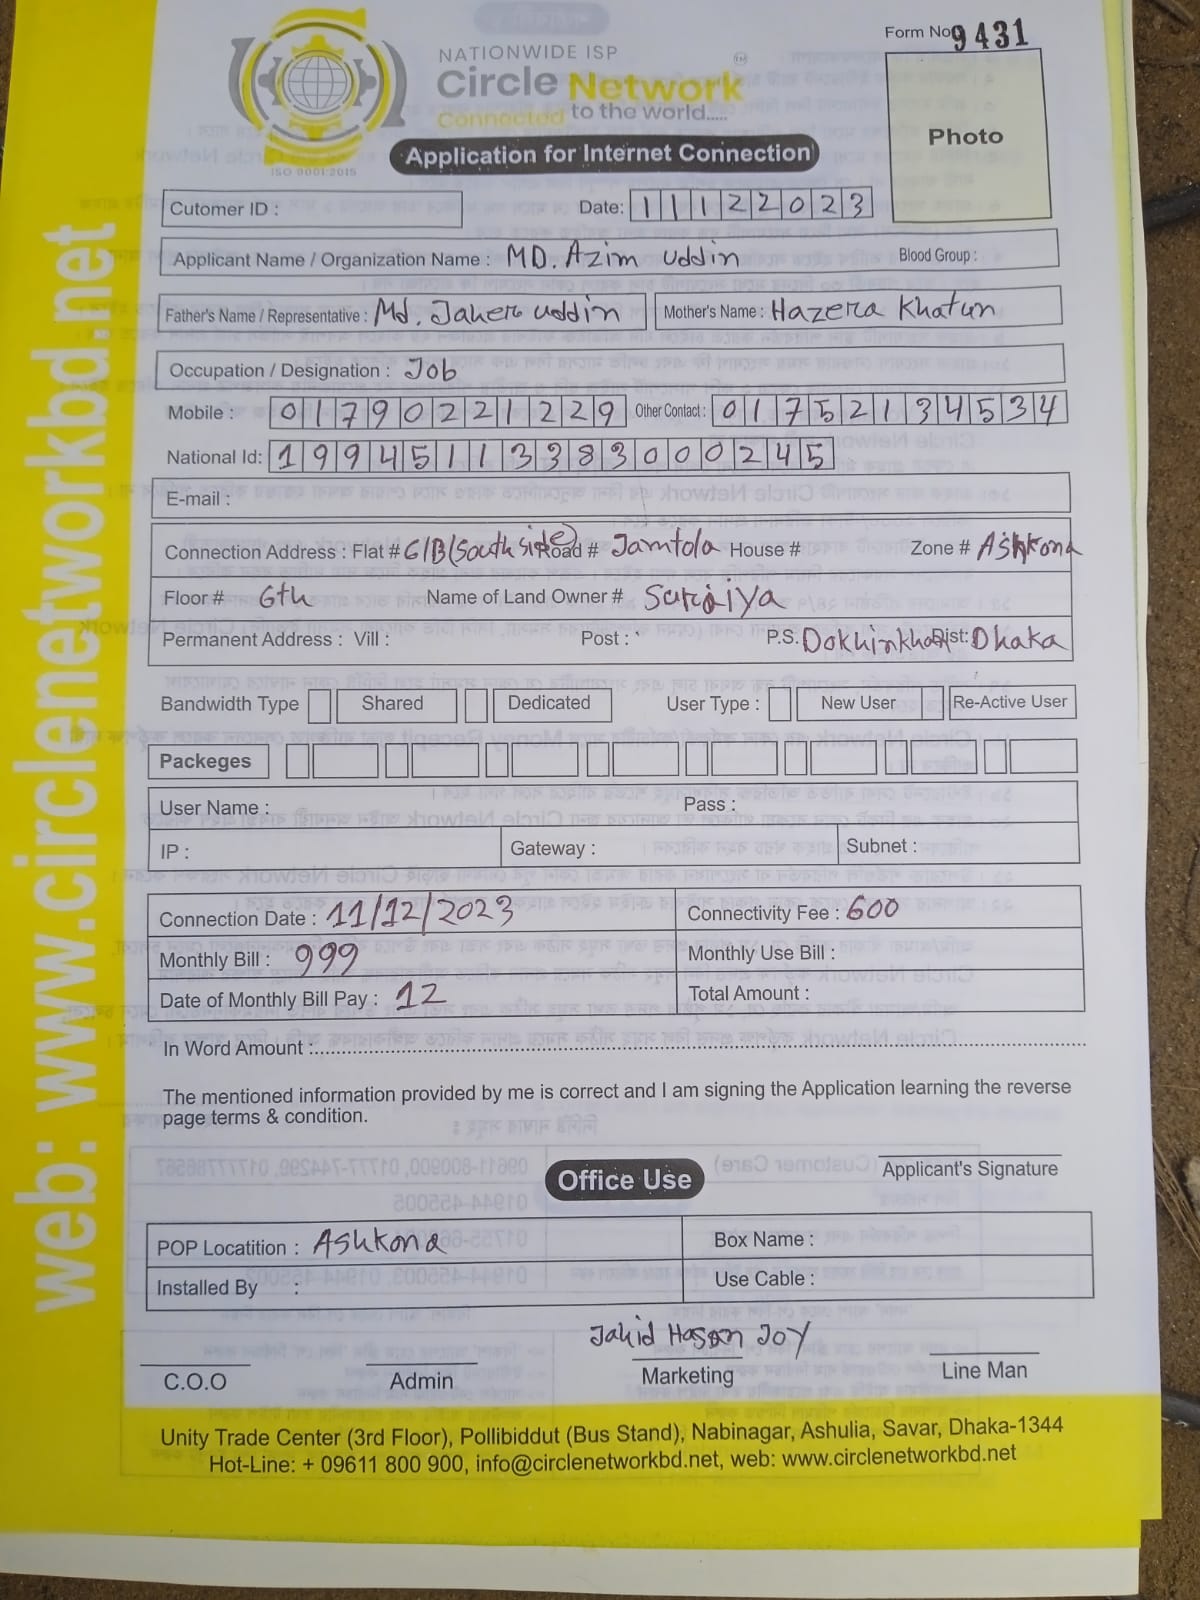 Form No 9431
NATIONWIDE ISP
Circle Network
Connected to the world.....
ISO 9001:2015
Photo
Application for Internet Connection
Cutomer ID :
Date: 11122023
Applicant Name / Organization Name : MD. Azim uddin Blood Group :
Father's Name / Representative : Md. Jaher uddin Mother's Name : Hazera Khatun
Occupation / Designation : Job
Mobile : 01790221229 Other Contact : 01752134534
National Id: 19945113383000245
E-mail :
Connection Address : Flat # 6/B (South side) Road # Jamtola House # Zone # Ashkona
Floor # 6th Name of Land Owner # Suraiya
Permanent Address : Vill : Post : P.S: Dokhinkhan Dist: Dhaka
Bandwidth Type Shared Dedicated User Type : New User Re-Active User
Packeges
User Name : Pass :
IP : Gateway : Subnet :
Connection Date : 11/12/2023 Connectivity Fee : 600
Monthly Bill : 999 Monthly Use Bill :
Date of Monthly Bill Pay : 12 Total Amount :
In Word Amount :
The mentioned information provided by me is correct and I am signing the Application learning the reverse
page terms & condition.
Applicant's Signature
Office Use
POP Locatition : Ashkona Box Name :
Installed By : Use Cable :
Jahid Hasan Joy
C.O.O Admin Marketing Line Man
Unity Trade Center (3rd Floor), Pollibiddut (Bus Stand), Nabinagar, Ashulia, Savar, Dhaka-1344
Hot-Line: + 09611 800 900, info@circlenetworkbd.net, web: www.circlenetworkbd.net
web: www.circlenetworkbd.net